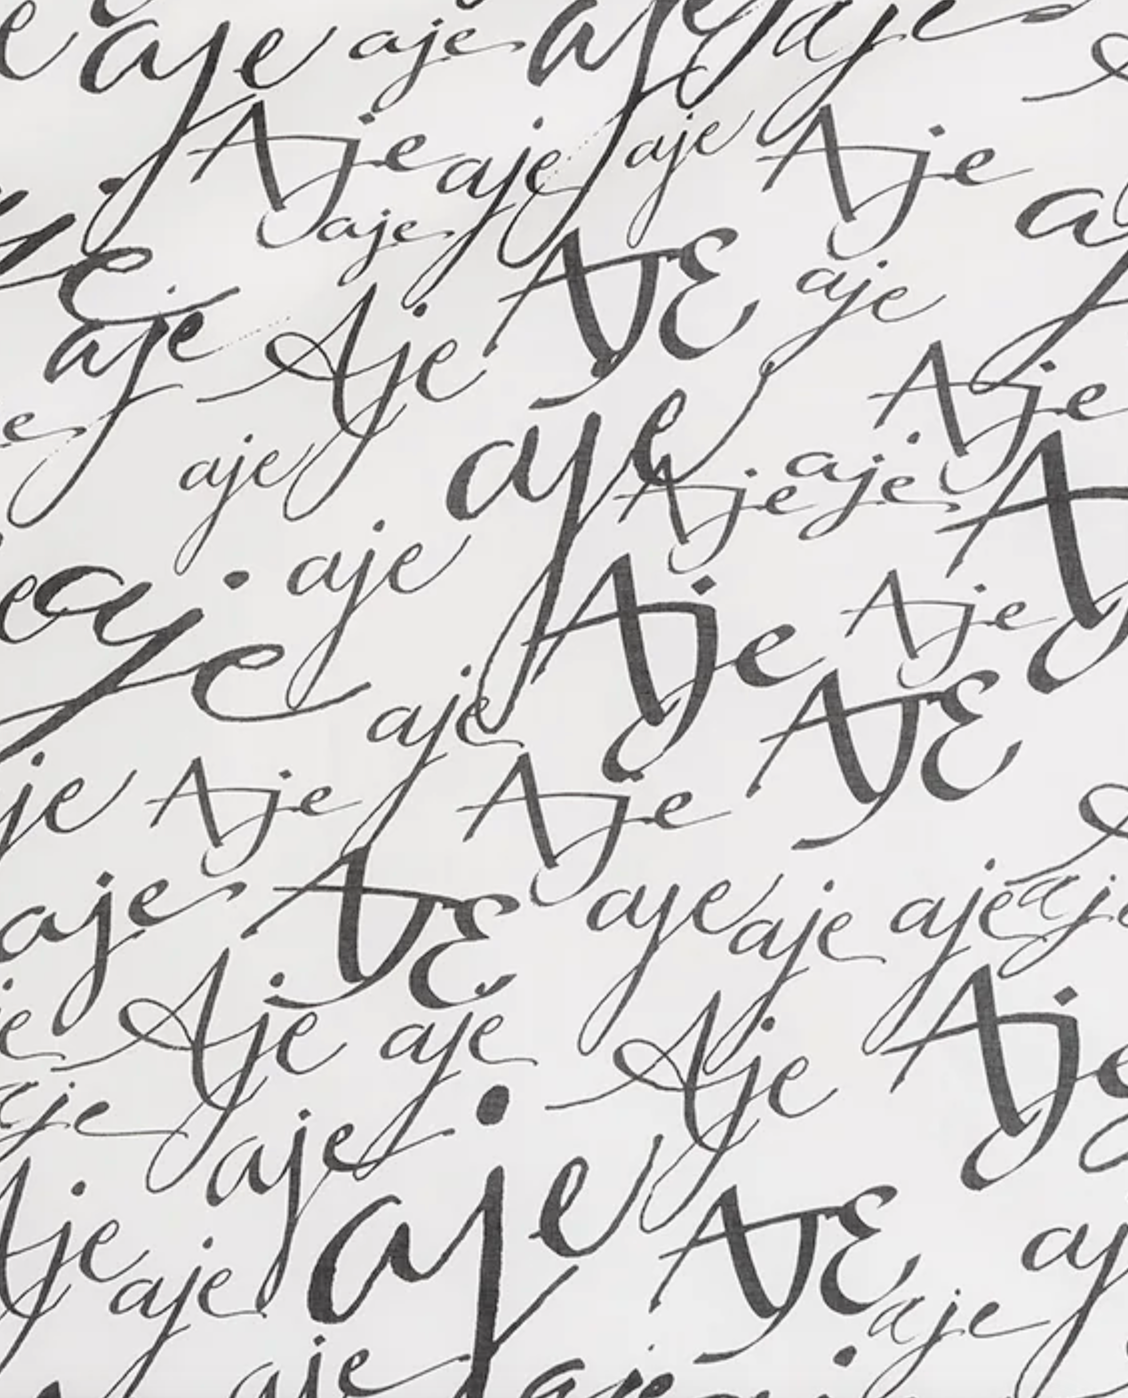 aje aje aje aje
Aje aje aje Aje
aje
AJE aje
aje Aje
Aje
aje aje Aje aje
aje aje
Aje Aje
aje
aje AJE
Aje Aje
aje AJE aje aje aje
Aje aje Aje Aje
aje
aje
Aje aje aje AJE
aje
aje